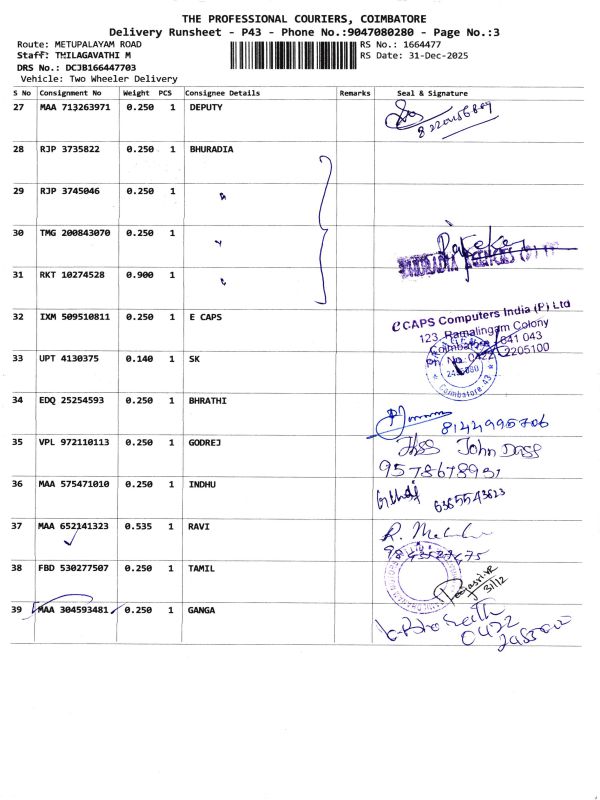 THE PROFESSIONAL COURIERS, COIMBATORE
Delivery Runsheet - P43 - Phone No.:9047080280 - Page No.:3
Route: METUPALAYAM ROAD RS No.: 1664477
Staff: THILAGAVATHI M RS Date: 31-Dec-2025
DRS No.: DCJB166447703
Vehicle: Two Wheeler Delivery
S No Consignment No Weight PCS Consignee Details Remarks Seal & Signature
27 MAA 713263971 0.250 1 DEPUTY
28 RJP 3735822 0.250 1 BHURADIA
29 RJP 3745046 0.250 1
30 TMG 200843070 0.250 1
31 RKT 10274528 0.900 1
32 IXM 509510811 0.250 1 E CAPS
eCAPS Computers India (P) Ltd
123, Ramalingam Colony
Coimbatore - 641 043
Ph No: 0422 2205100
33 UPT 4130375 0.140 1 SK
Coimbatore-43
34 EDQ 25254593 0.250 1 BHRATHI
8144995706
35 VPL 972110113 0.250 1 GODREJ
John Dass
9578678951
36 MAA 575471010 0.250 1 INDHU
6385543623
37 MAA 652141323 0.535 1 RAVI
38 FBD 530277507 0.250 1 TAMIL
31/12
39 MAA 304593481 0.250 1 GANGA
0422